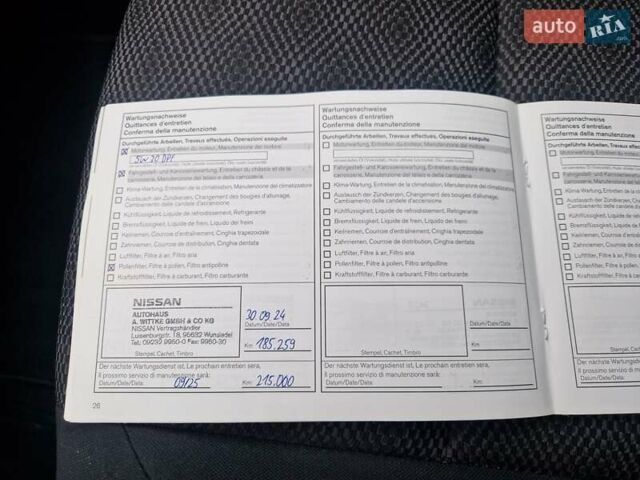 auto RIA
.com
Wartungsnachweise
Quittances d'entretien
Conferma della manutenzione
Durchgeführte Arbeiten, Travaux effectués, Operazioni eseguite
Motorwartung, Entretien du moteur, Manutenzione del motore
5W30 DPF
Fahrgestell- und Karosseriewartung, Entretien du châssis et de la
carrosserie, Manutenzione del telaio e della carrozzeria
Klima-Wartung, Entretien de la climatisation, Manutenzione del climatizzatore
Austausch der Zündkerzen, Changement des bougies d'allumage,
Cambiamento delle candele d'accensione
Kühlflüssigkeit, Liquide de refroidissement, Refrigerante
Bremsflüssigkeit, Liquide de frein, Liquido dei freni
Keilriemen, Courroie d'entraînement, Cinghia trapezoidale
Zahnriemen, Courroie de distribution, Cinghia dentata
Luftfilter, Filtre à air, Filtro aria
Pollenfilter, Filtre à pollen, Filtro antipolline
Kraftstofffilter, Filtre à carburant, Filtro carburante
NISSAN
AUTOHAUS
A. WITTKE GMBH & CO KG
NISSAN Vertragshändler
Luisenburgstr. 18, 95632 Wunsiedel
Tel: 09232 9950-0 Fax: 9950-30
30 09 24
Datum/Date/Data
Km: 185.259
Stempel, Cachet, Timbro
Der nächste Wartungsdienst ist, Le prochain entretien sera,
Il prossimo servizio di manutenzione sarà:
Datum/Date/Data: 09/25 Km: 215.000
26
Wartungsnachweise
Quittances d'entretien
Conferma della manutenzione
Durchgeführte Arbeiten, Travaux effectués, Operazioni eseguite
Motorwartung, Entretien du moteur, Manutenzione del motore
Fahrgestell- und Karosseriewartung, Entretien du châssis et de la
carrosserie, Manutenzione del telaio e della carrozzeria
Klima-Wartung, Entretien de la climatisation, Manutenzione del climatizzatore
Austausch der Zündkerzen, Changement des bougies d'allumage,
Cambiamento delle candele d'accensione
Kühlflüssigkeit, Liquide de refroidissement, Refrigerante
Bremsflüssigkeit, Liquide de frein, Liquido dei freni
Keilriemen, Courroie d'entraînement, Cinghia trapezoidale
Zahnriemen, Courroie de distribution, Cinghia dentata
Luftfilter, Filtre à air, Filtro aria
Pollenfilter, Filtre à pollen, Filtro antipolline
Kraftstofffilter, Filtre à carburant, Filtro carburante
Datum/Date/Data
Km:
Stempel, Cachet, Timbro
Der nächste Wartungsdienst ist, Le prochain entretien sera,
Il prossimo servizio di manutenzione sarà:
Datum/Date/Data: Km: